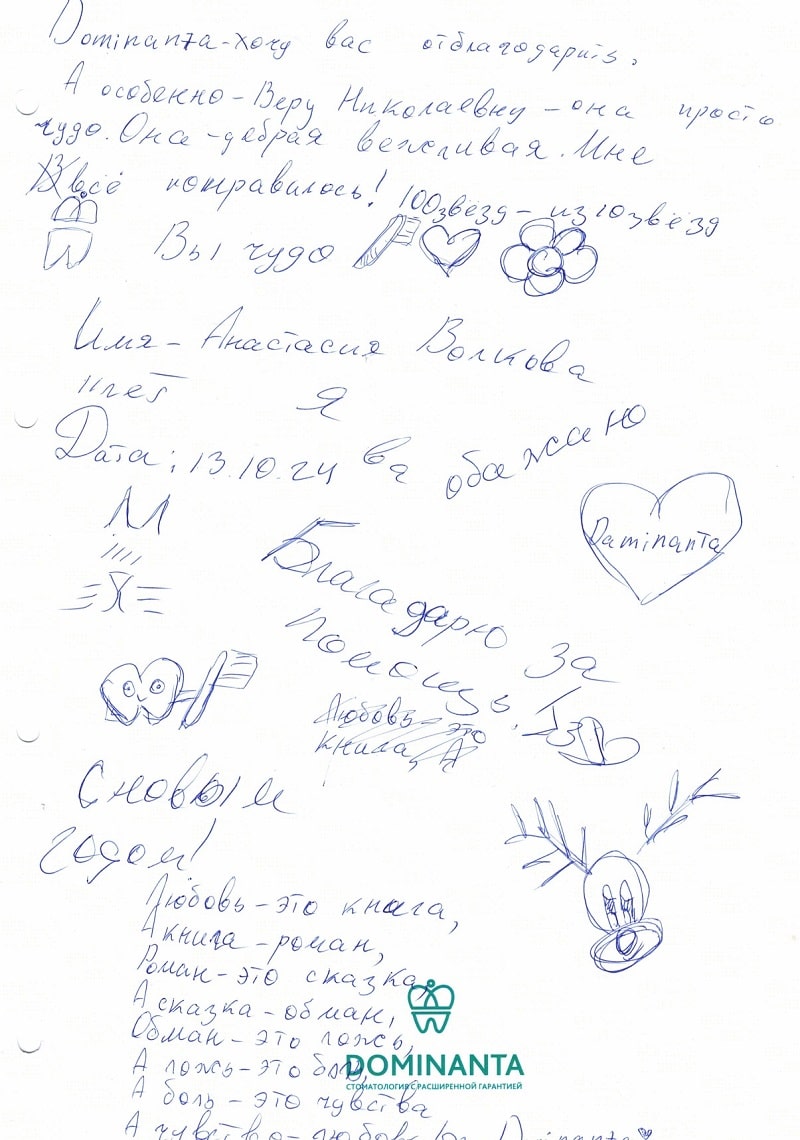 Dominanта-хочу вас отблагодарить.
А особенно-Веру Николаевну-она просто
чудо. Она-добрая вежливая. Мне
всё понравилось! 100звёзд-из10звёзд
Вы чудо
Имя-Анастасия Волкова
11лет Я
Дата: 13.10.24 ва обажаю
М
Daminanта
Благадарю за
помощь.
Любовь-это
книга, А
С новым
годом!
Любовь-это книга,
А книга-роман,
Роман-это сказка,
А сказка-обман,
Обман-это ложь,
А ложь-это боль,
А боль-это чувства
А чувство-любовь
DOMINANTA
СТОМАТОЛОГИЯ С РАСШИРЕННОЙ ГАРАНТИЕЙ